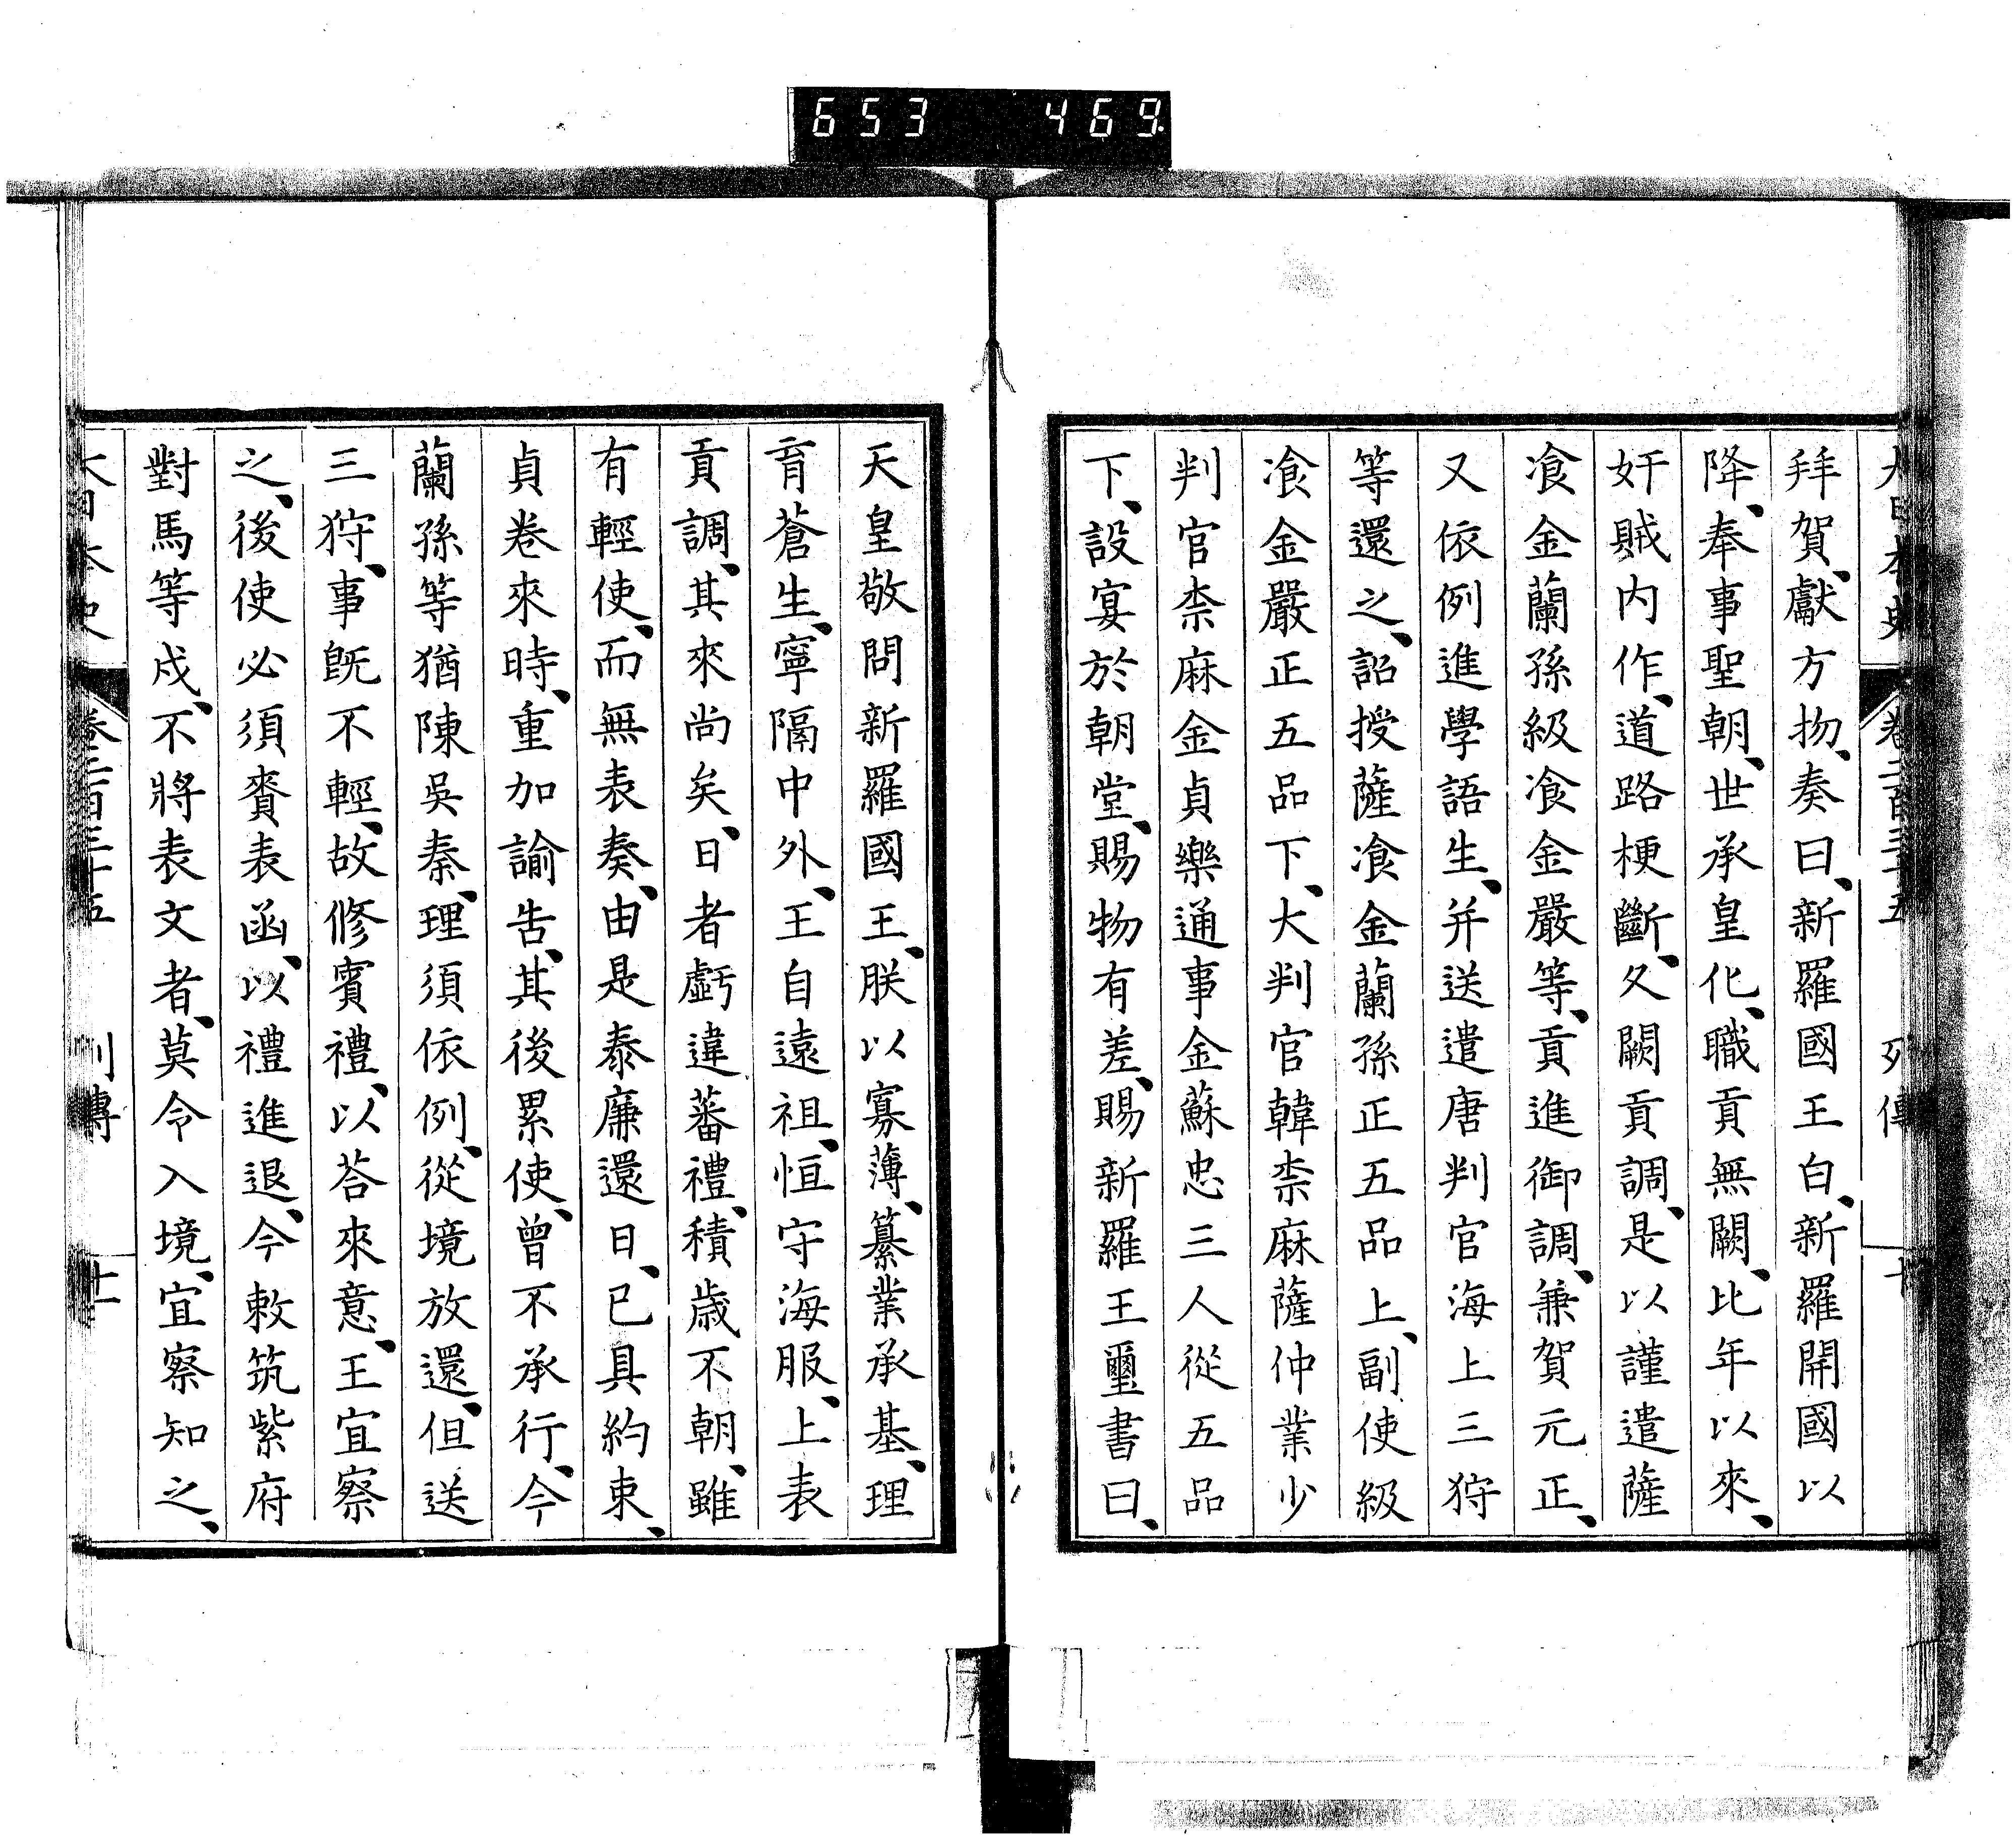 653 469.
大日本史 卷二百三十五 列傳 十
拜賀、獻方物、奏曰、新羅國王白、新羅開國以
降、奉事聖朝、世承皇化、職貢無闕、比年以來、
奸賊内作、道路梗斷、久闕貢調、是以謹遣薩
飡金蘭孫級飡金嚴等、貢進御調、兼賀元正、
又依例進學語生、并送遣唐判官海上三狩
等還之、詔授薩飡金蘭孫正五品上、副使級
飡金嚴正五品下、大判官韓柰麻薩仲業少
判官柰麻金貞樂通事金蘇忠三人從五品
下、設宴於朝堂、賜物有差、賜新羅王璽書曰、
天皇敬問新羅國王、朕以寡薄、纂業承基、理
育蒼生、寧隔中外、王自遠祖、恒守海服、上表
貢調、其來尚矣、日者虧違蕃禮、積歲不朝、雖
有輕使、而無表奏、由是泰廉還日、已具約束、
貞卷來時、重加諭告、其後累使、曾不承行、今
蘭孫等猶陳吳奏、理須依例、從境放還、但送
三狩、事旣不輕、故修賓禮、以荅來意、王宜察
之、後使必須賷表函、以禮進退、今敕筑紫府
對馬等戍、不將表文者、莫令入境、宜察知之、
大日本史 卷二百三十五 列傳 十一